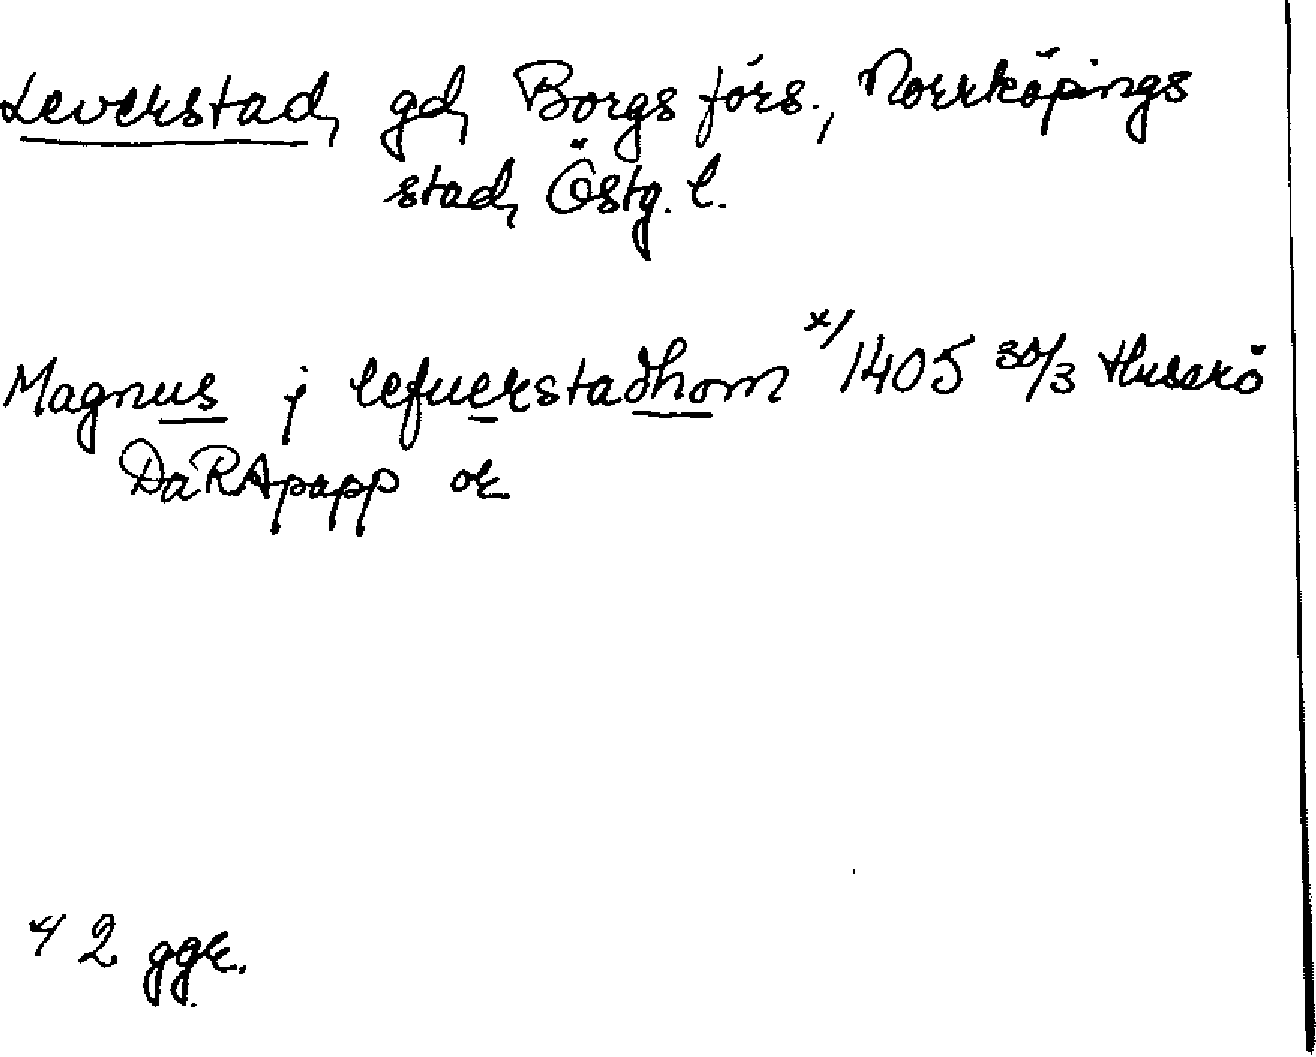 Leverstad, gd, Borgs förs., Norrköpings
stad, Östg. l.
Magnus j lefuerstadhom x/ 1405 30/3 Huserö
DaRApapp or
x/ 2 ggr.